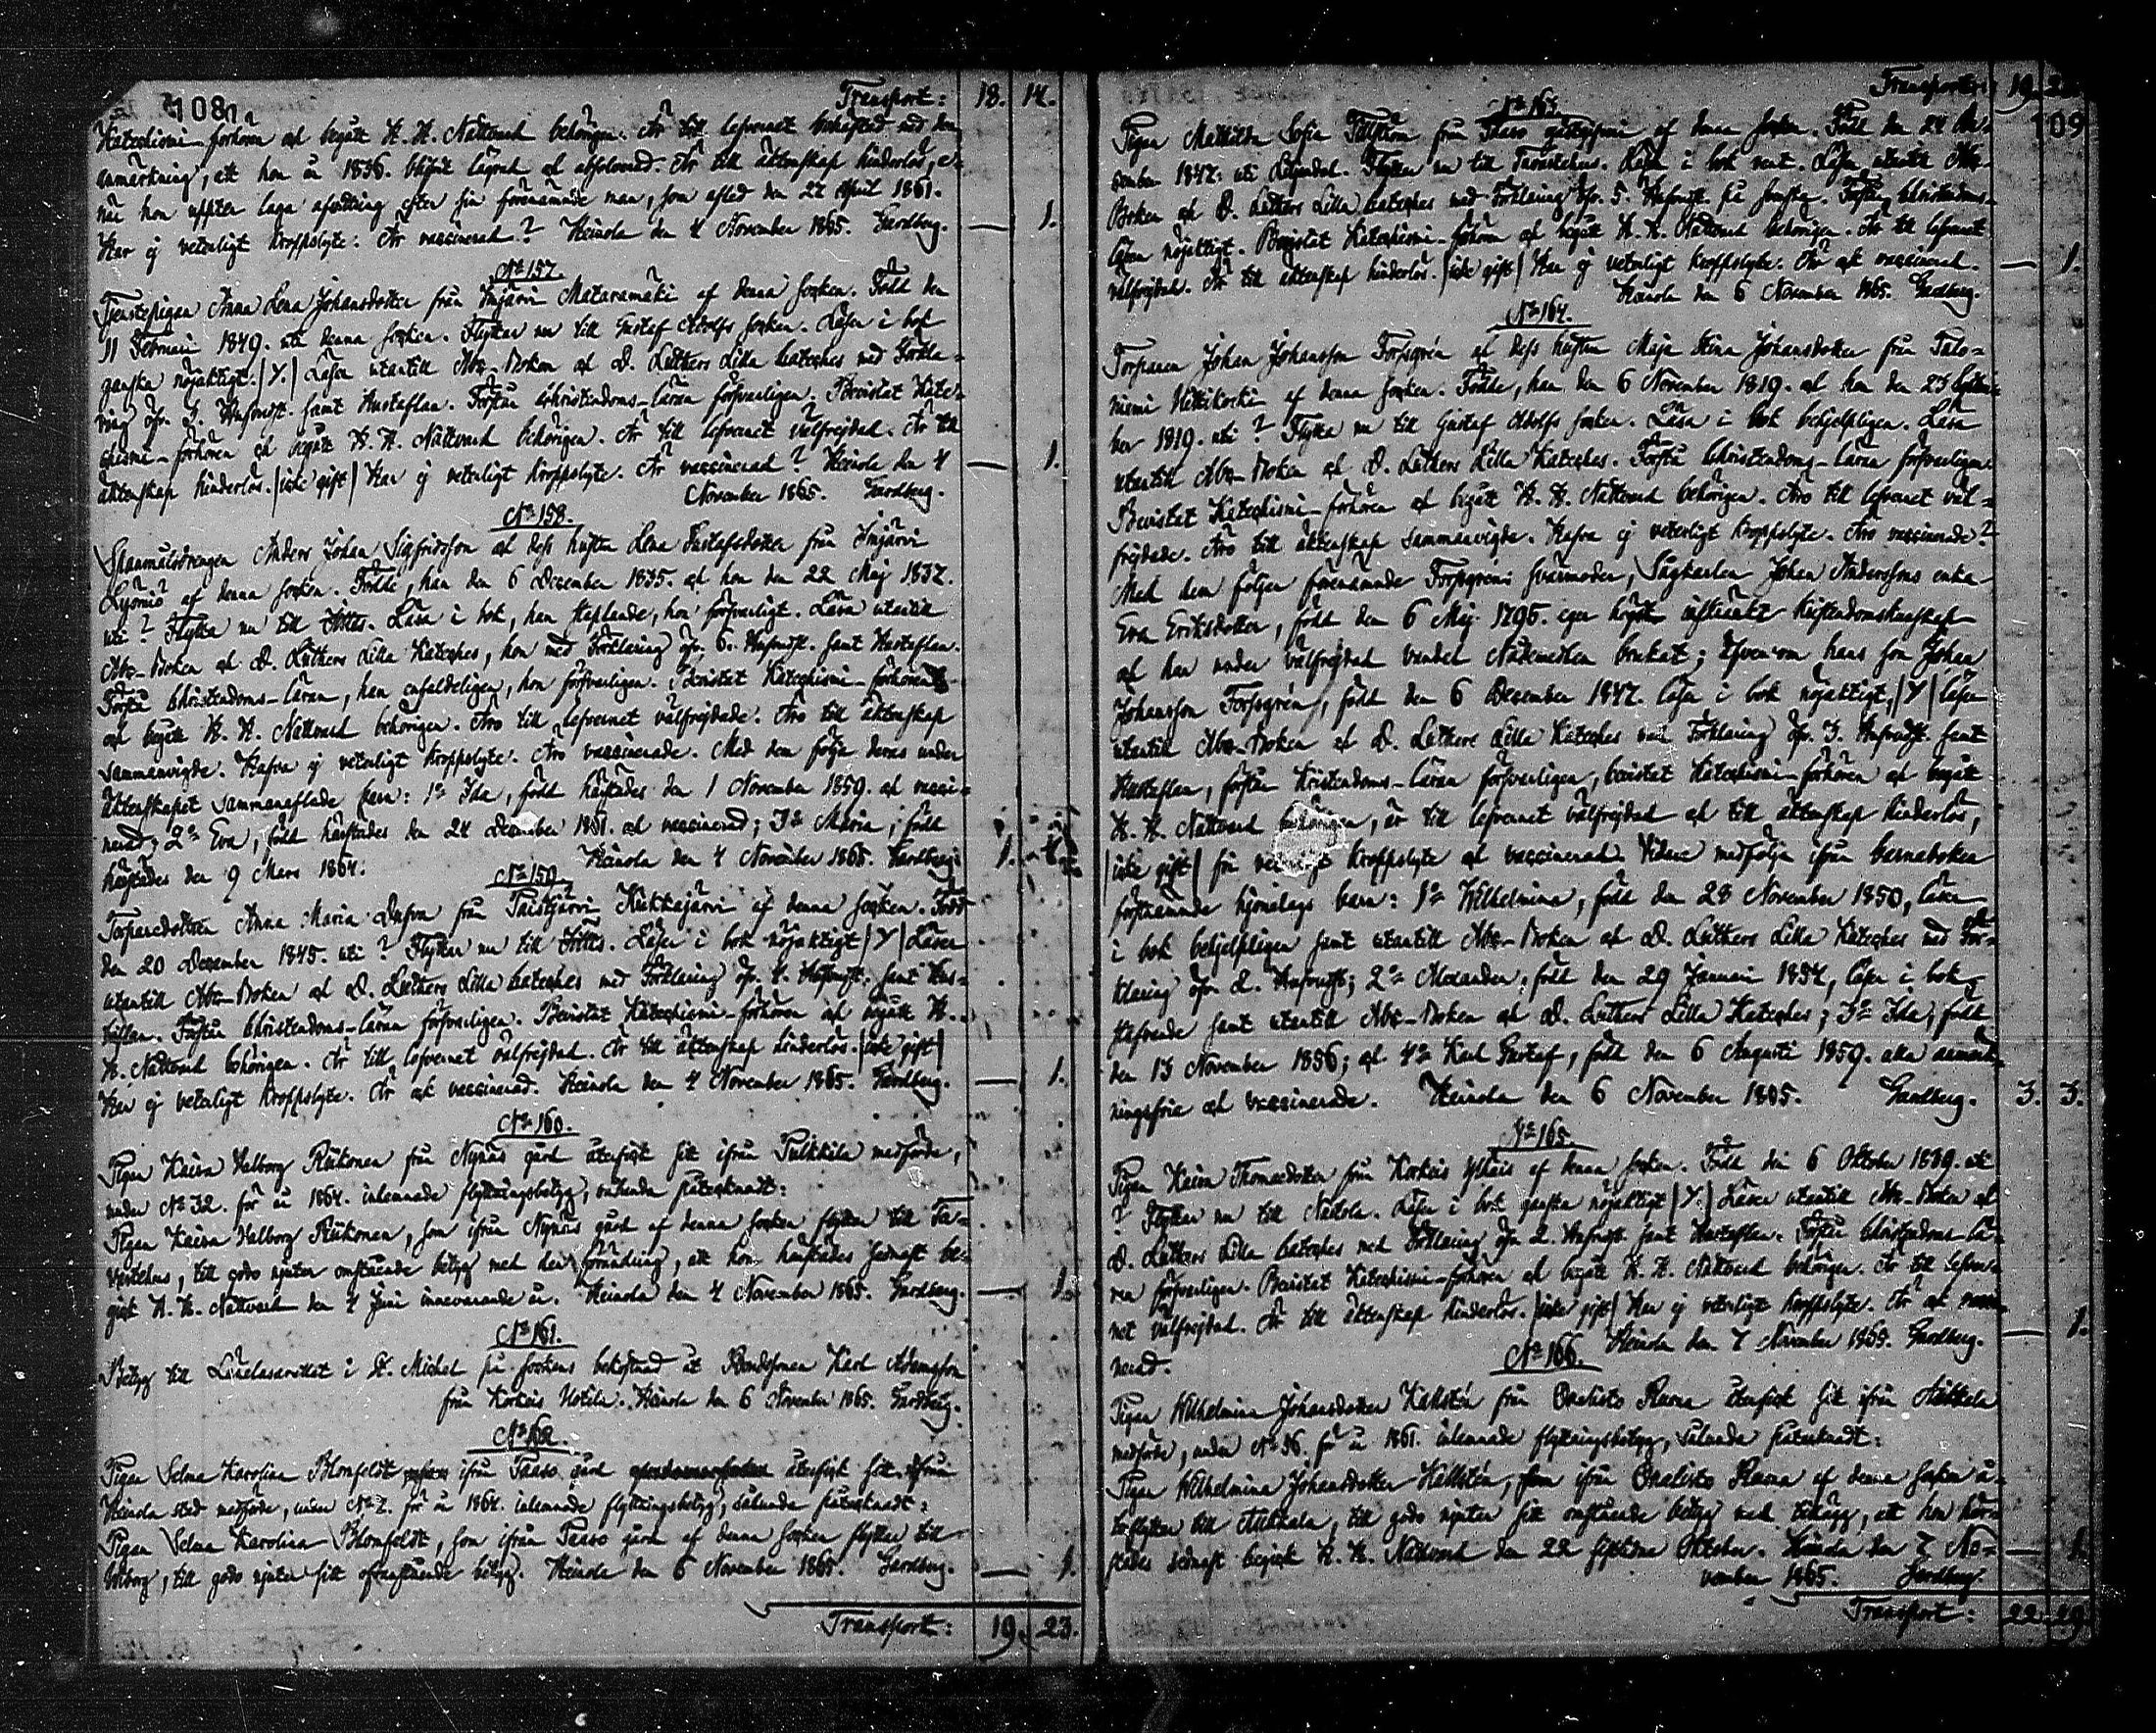 108
Transport: 18. 14.
Katechismi-förhören och begått H. H. Nattvard behörigen. Är till lefvernet behäftad med den
anmärkning, att hon år 1836. blifvit lägrad och absolverad. Är till äktenskap hinderlös, e-
när hon uppter laga afvittring efter sin förenämnde man, som afled den 22 April 1861.
Har ej veterligt kroppslyte. Är vaccinerad? Heinola den 4 November 1865. Gardberg. — 1.
No 157.
Tjenstepigan Anna Lena Johansdotter från Imjärvi Mataramäki af denna socken. Född den
11 Februari 1849. uti denna socken. Flyttar nu till Gustaf Adolfs socken. Läser i bok
ganska nöjaktigt. (Y.) Läser utantill Abc-Boken och D. Luthers Lilla Kateches med Förkla-
ring öfv. 3. Hufvudst. samt Hustaflan. Förstår Christendoms-läran försvarligen. Bevistat Kate-
chismi-förhören och begått H. H. Nattvard behörigen. Är till lefvernet välfrejdad. Är till
äktenskap hinderlös. (icke gift) Har ej veterligt kroppslyte. Är vaccinerad? Heinola den 4 — 1.
November 1865. Gardberg.
No 158.
Spanmålsdrengen Anders Johan Sigfridsson och dess hustru Lena Gustafsdotter från Imjärvi
af denna socken. Födde, han den 6 December 1835. och hon den 22 Maj 1837.
uti? Flytta nu till Iittis. Läsa i bok, han staplande, hon försvarligt. Läsa utantill
Abc-Boken och D. Luthers Lilla Kateches, hon med Förklaring öfv. 6. Hufvudst. samt Hustaflan.
Förstå Christendoms-läran, han enfaldeligen, hon försvarligen. Bevistat Katechismi-förhören
och begått H. H. Nattvard behörigen. Äro till lefvernet välfrejdade. Äro till äktenskap
sammanvigde. Hafva ej veterligt kroppslyte. Äro vaccinerade. Med dem följa deras under
äktenskapet sammanaflade barn: 1o Ida, född härstädes den 1 November 1859. och vacci-
nerad; 2o Eva, född härstädes den 24 December 1861. och vaccinerad; 3o Maria, född
härstädes den 9 Mars 1864. Heinola den 4 November 1865. Gardberg. 1.
No 159.
Torparedottren Anna Maria från Taistjärvi Kukkajärvi af denna socken. Född
den 20 December 1845. uti? Flyttar nu till Iittis. Läser i bok nöjaktigt (Y) Läser
utantill Abc-Boken och D. Luthers Lilla Kateches med Förklaring öfv. 4. Hufvudst. samt Hus-
taflan. Förstår Christendoms-läran försvarligen. Bevistat Katechismi-förhören och begått H.
H. Nattvard behörigen. Är till lefvernet välfrejdad. Är till äktenskap hinderlös. (icke gift)
Har ej veterligt kroppslyte. Är ock vaccinerad. Heinola den 4 November 1865. Gardberg. — 1.
No 160.
Pigan Kaisa Valborg Riikonen från Nynäs gård återfick sitt ifrån Pulkkila medförde,
under No 32. för år 1864. inlemnade flyttningsbetyg, sålunda påtecknadt:
Pigan Kaisa Valborg Riikonen, som ifrån Nynäs gård af denna socken flyttar till Ta-
vastehus, till godo njuter omstående betyg med den förändring, att hon härstädes sednast be-
gick H. H. Nattvard den 4 Juni innevarande år. Heinola den 4 November 1865. Gardberg. — 1.
No 161.
Betyg till Länelasarettet i St. Michel på sockens bekostnad åt Bondesonen Karl Adamsson
från Korkeis Uotila. Heinola den 6 November 1865. Gardberg.
No 162.
Pigan Selma Karolina Blomfeldt ifrån Paaso gård återfick sitt ifrån
Heinola stad medförde, under No 2. för år 1864. inlemnade flyttningsbetyg, sålunda påtecknadt:
Pigan Selma Karolina Blomfeldt, som ifrån Paaso gård af denna socken flyttar till
Wiborg, till godo njuter sitt ofvanstående betyg. Heinola den 6 November 1865. Gardberg. — 1.
Transport: 19. 23.
Transport: 19. 23.
109
No 163.
Pigan Mathilda Sofia från Paaso gästgifveri af denna socken. Född den 24 De-
cember 1847. uti Liljendal. Flyttar nu till Tavastehus. Läser i bok rent. Läser utantill Abc-
Boken och D. Luthers Lilla Kateches med Förklaring öfv. 5. Hufvudst. på svenska. Förstår Christendoms-
läran nöjaktigt. Bevistat Katechismi-förhören och begått H. H. Nattvard behörigen. Är till lefvernet
välfrejdad. Är till äktenskap hinderlös. (icke gift) Har ej veterligt kroppslyte. Är ock vaccinerad. — 1.
Heinola den 6 November 1865. Gardberg.
No 164.
Torparen Johan Johansson Forssgrén och dess hustru Maja Stina Johansdotter från
af denna socken. Födde, han den 6 November 1819. och hon den 23
ber 1819. uti? Flytta nu till Gustaf Adolfs socken. Läsa i bok behjelpligen. Läsa
utantill Abc-Boken och D. Luthers Lilla Kateches. Förstå Christendoms-läran försvarligen.
Bevistat Katechismi-förhören och begått H. H. Nattvard behörigen. Äro till lefvernet väl-
frejdade. Äro till äktenskap sammanvigde. Hafva ej veterligt kroppslyte. Äro vaccinerade?
Med dem följer förenämnde Forssgréns svärmoder, Sågkarlen Johan Anderssons enka
Eva Eriksdotter, född den 6 Maj 1795. eger högst inskränkt kristendomskunskap
och har under välfrejdad vandel Nådemedlen brukat; äfvensom hans son Johan
Johansson Forssgrén, född den 6 December 1847. läser i bok nöjaktigt, (Y) läser
utantill Abc-Boken och D. Luthers Lilla Kateches med Förklaring öfv. 3. Hufvudst. samt
Hustaflan, förstår Kristendoms-läran försvarligen, bevistat Katechismi-förhören och begått
H. H. Nattvard behörigen, är till lefvernet välfrejdad och till äktenskap hinderlös,
(icke gift) fri veterligt kroppslyte och vaccinerad. Vidare medfölja ifrån barnaboken
förstnämnde hjonelags barn: 1o Wilhelmina, född den 28 November 1850, läser
i bok behjelpligen samt utantill Abc-Boken och D. Luthers Lilla Kateches med För-
klaring öfv. 2. Hufvudst; 2o Alexander, född den 29 Januari 1854, läser i bok
stafvande samt utantill Abc-Boken och D. Luthers Lilla Kateches; 3o Ida, född
den 13 November 1856; och 4o Karl Gustaf, född den 6 Augusti 1859. alla anmärk-
ningsfria och vaccinerade. Heinola den 6 November 1865. Gardberg. 3. 3.
No 165.
Pigan Kaisa Thomasdotter från Korkeis Yltäis af denna socken. Född den 6 Oktober 1839. uti
? Flyttar nu till Nastola. Läser i bok ganska nöjaktigt (Y.) Läser utantill Abc-Boken och
D. Luthers Lilla Kateches med Förklaring öfv. 2. Hufvudst. samt Hustaflan. Förstår Christendoms-lä-
ran försvarligen. Bevistat Katechismi-förhören och begått H. H. Nattvard behörigen. Är till lefver-
net välfrejdad. Är till äktenskap hinderlös. (icke gift) Har ej veterligt kroppslyte. Är ock vacci-
nerad. Heinola den 7 November 1865. Gardberg. — 1.
No 166.
Pigan Wilhelmina Johansdotter Hallstén från Onalisto Ravna återfick sitt ifrån
medförde, under No 36. för år 1861. inlemnade flyttningsbetyg, sålunda påtecknadt:
Pigan Wilhelmina Johansdotter Hallstén, som ifrån Onalisto Ravna af denna socken å-
terflyttar till till godo njuter sitt omstående betyg med tillägg, att hon här-
städes sednast begick H. H. Nattvard den 22 sistlidne Oktober. Heinola den 7 No- — 1.
vember 1865. Gardberg.
Transport: 22. 29.